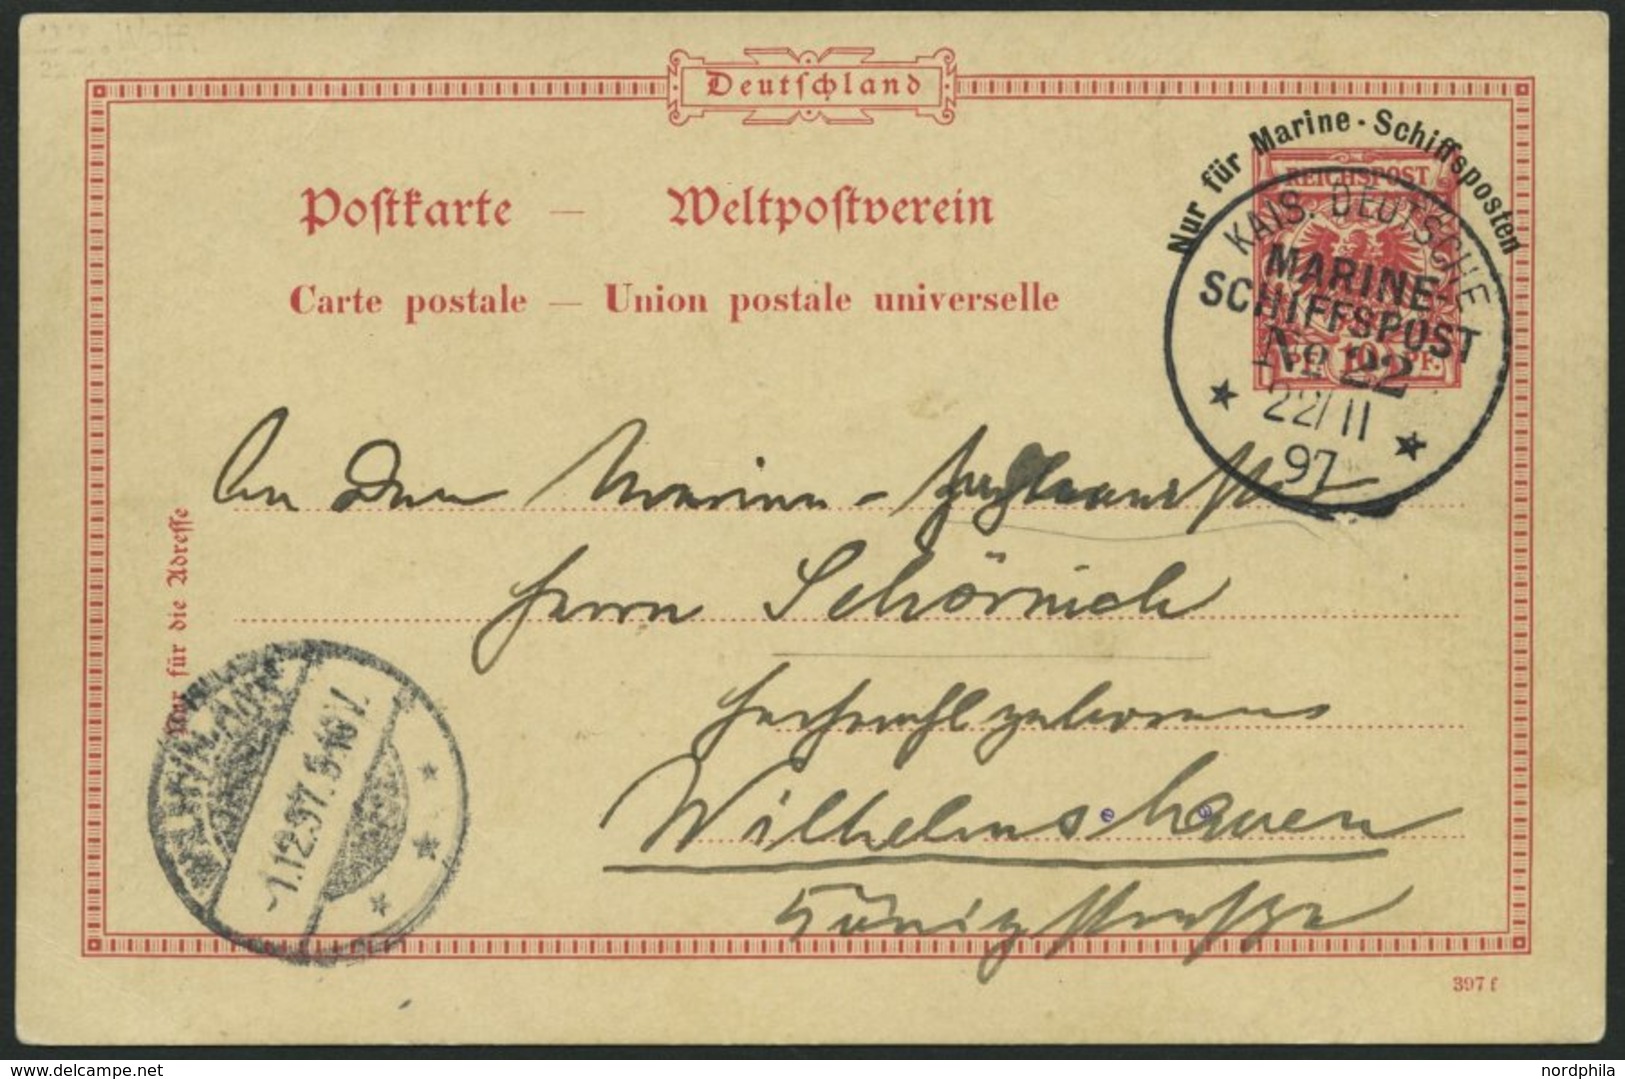 Deutschland
Nur für Marine-Schiffsposten
REICHSPOST
Postkarte — Weltpostverein
Carte postale — Union postale universelle
KAIS. DEUTSCHE
MARINE-
SCHIFFSPOST
No 22
PF. 10 PF.
22/11
97
An den Marine-
Herrn Schörnich
Wilhelmshaven
Königstraße
Nur für die Adresse
1.12.97. 9-10 V.
397 f
nordphila